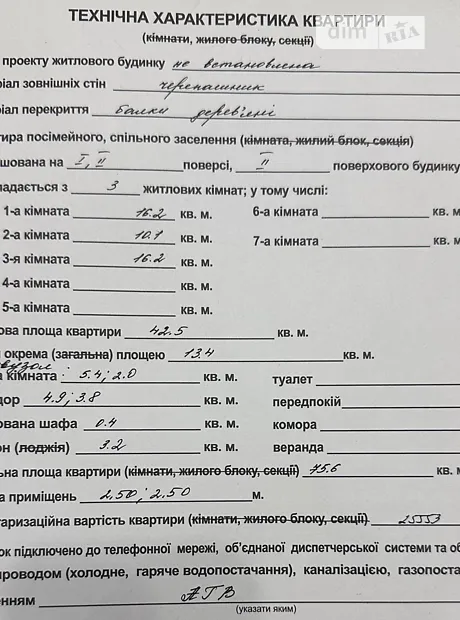 ТЕХНІЧНА ХАРАКТЕРИСТИКА КВАРТИРИ
dim RIA
(кімнати, жилого блоку, секції)
проекту житлового будинку не встановлена
ріал зовнішніх стін черепашник
ріал перекриття балки дерев'яні
тира посімейного, спільного заселення (кімната, жилий блок, секція)
шована на I, II поверсі, II поверхового будинку
ладається з 3 житлових кімнат; у тому числі:
1-а кімната 16.2 кв. м. 6-а кімната кв. м.
2-а кімната 10.1 кв. м. 7-а кімната кв. м.
3-я кімната 16.2 кв. м.
4-а кімната кв. м.
5-а кімната кв. м.
ова площа квартири 42.5 кв. м.
окрема (загальна) площею 13.4 кв. м.
вузол:
а кімната 5.4; 2.0 кв. м. туалет
дор 4.9; 3.8 кв. м. передпокій
ована шафа 0.4 кв. м. комора
он (лоджія) 3.2 кв. м. веранда
льна площа квартири (кімнати, жилого блоку, секції) 75.6 кв. м
а приміщень 2.50; 2.50 м.
таризаційна вартість квартири (кімнати, жилого блоку, секції) 25553
ок підключено до телефонної мережі, об'єднаної диспетчерської системи та об
проводом (холодне, гаряче водопостачання), каналізацією, газопоста
енням АГВ
(указати яким)